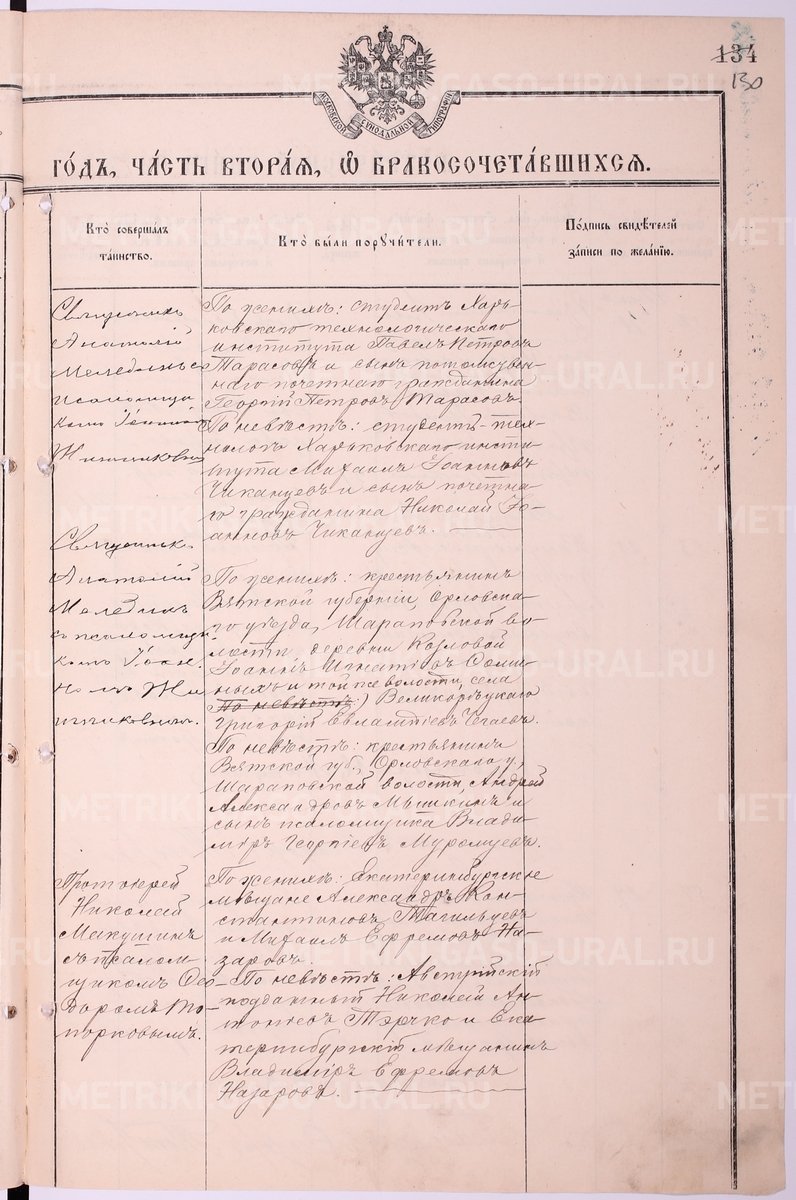 134
130
МОСКОВСКОЙ СУНОДАЛЬНОЙ ТИПОГРАФІИ
ГО́ДЪ, ЧА́СТЬ ВТОРА́Я, Ѡ҆ БРАКОСОЧЕТА́ВШИХСЯ.
Кто̀ соверша́лъ
та́инство.
Кто̀ бы́ли порꙋчи́тели.
По́дпись свидѣ́телей
за́писи по жела́нію.
Священникъ
Анатолій
Мелединъ с
псаломщи
комъ Іоанном
По женихѣ: студентъ Харь-
ковскаго технологическаго
института Павелъ Петровъ
Тарасовъ и сынъ потомствен-
наго почетнаго гражданина
Георгій Петровъ Тарасовъ.
По невѣстѣ: студентъ-тех-
нологъ Харьковскаго инсти-
тута Михаилъ Іоанновъ
Чиканцевъ и сынъ почетна-
го гражданина Николай Іо-
анновъ Чиканцевъ.
Священник.
Анатолій
Меледин
съ псаломщи-
комъ Іоан-
номъ
По женихѣ: крестьянинъ
Вятской губерніи, Орловска-
го уѣзда, Шараповской во-
лости деревни Козловой
Іоаннъ Игнатіевъ
и той же волости, села
По невѣстѣ:) Великорѣцкаго
Григорій Евлампіевъ
По невѣстѣ: крестьянинъ
Вятской губ., Орловскаго у.,
Шараповской волости, Андрей
Александровъ Мышкинъ и
сынъ псаломщика Влади-
міръ Георгіевъ Муромцевъ.
Протоіерей
Николай
Макушинъ
съ псалом
щикомъ Ѳео-
доромъ То-
порковымъ.
По женихѣ: Екатеринбургскіе
мѣщане Александръ Кон-
стантиновъ Тагильцевъ
и Михаилъ Ефремовъ На-
заровъ.
По невѣстѣ: Австрійскій
подданный Николай Ан-
тоніевъ Тэрчко и Ека-
теринбургскій мѣщанинъ
Владиміръ Ефремовъ
Назаровъ.
METRIKI.GASO-URAL.RU